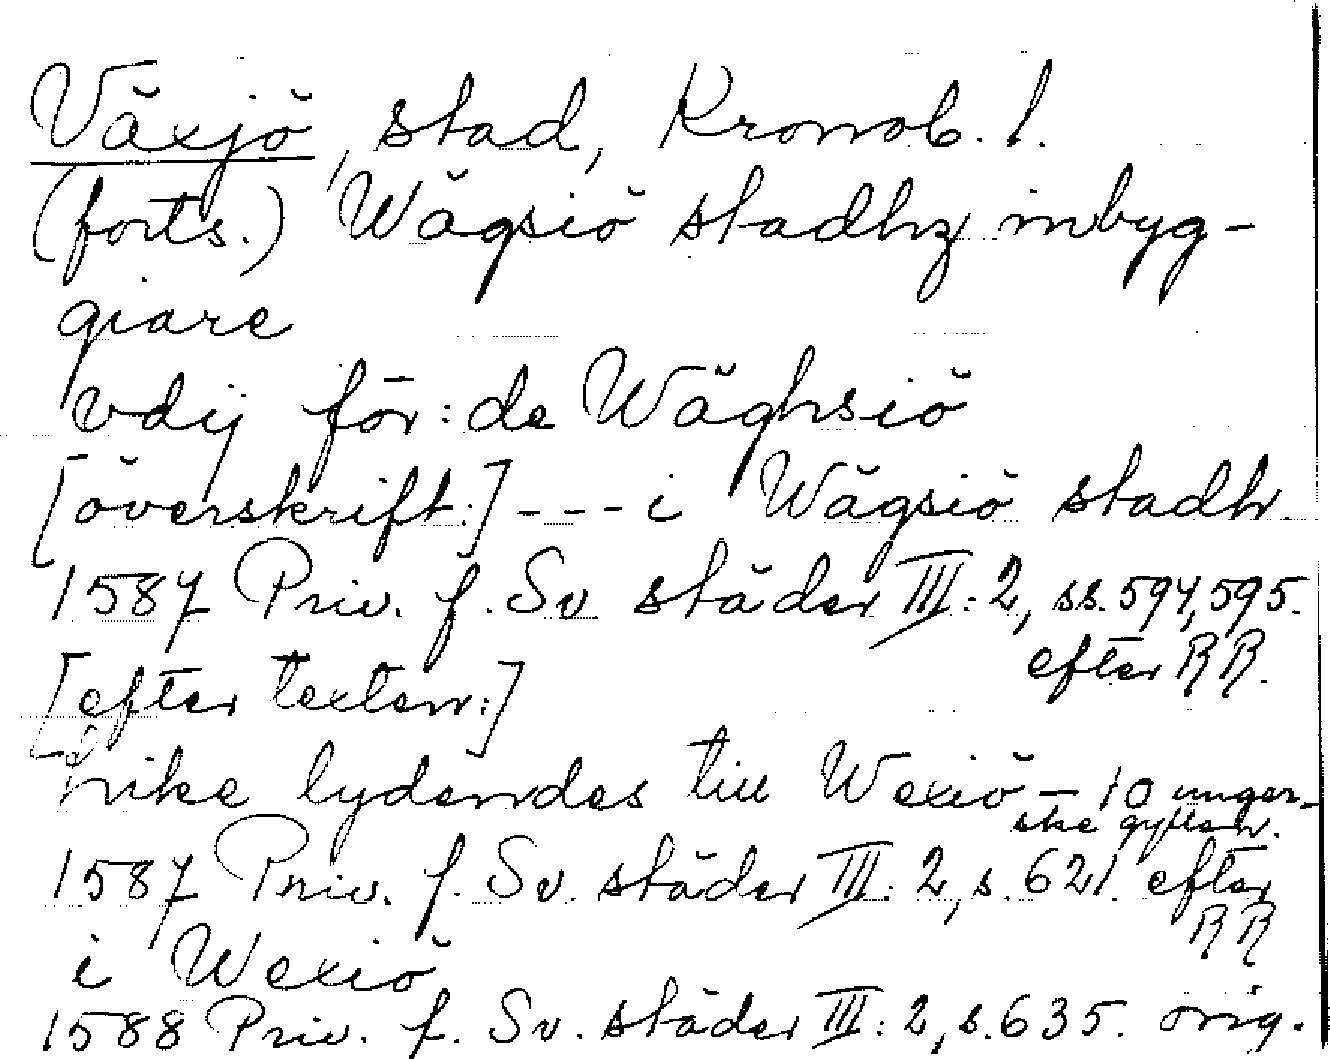 Växjö, stad, Kronob. l.
(forts.) Wägsiö stadhz inbyg-
giare
vdij för:de Wäghsiö
[överskrift:] --- i Wägsiö stadh.
1587 Priv. f. Sv. städer III: 2, ss. 594, 595.
efter RR.
[efter texten:]
hike lydendes till Wexiö – 10 unger-
ske gyllen.
1587 Priv. f. Sv. städer III: 2, s. 621. efter
RR
i Wexiö
1588 Priv. f. Sv. städer III: 2, s. 635. orig.